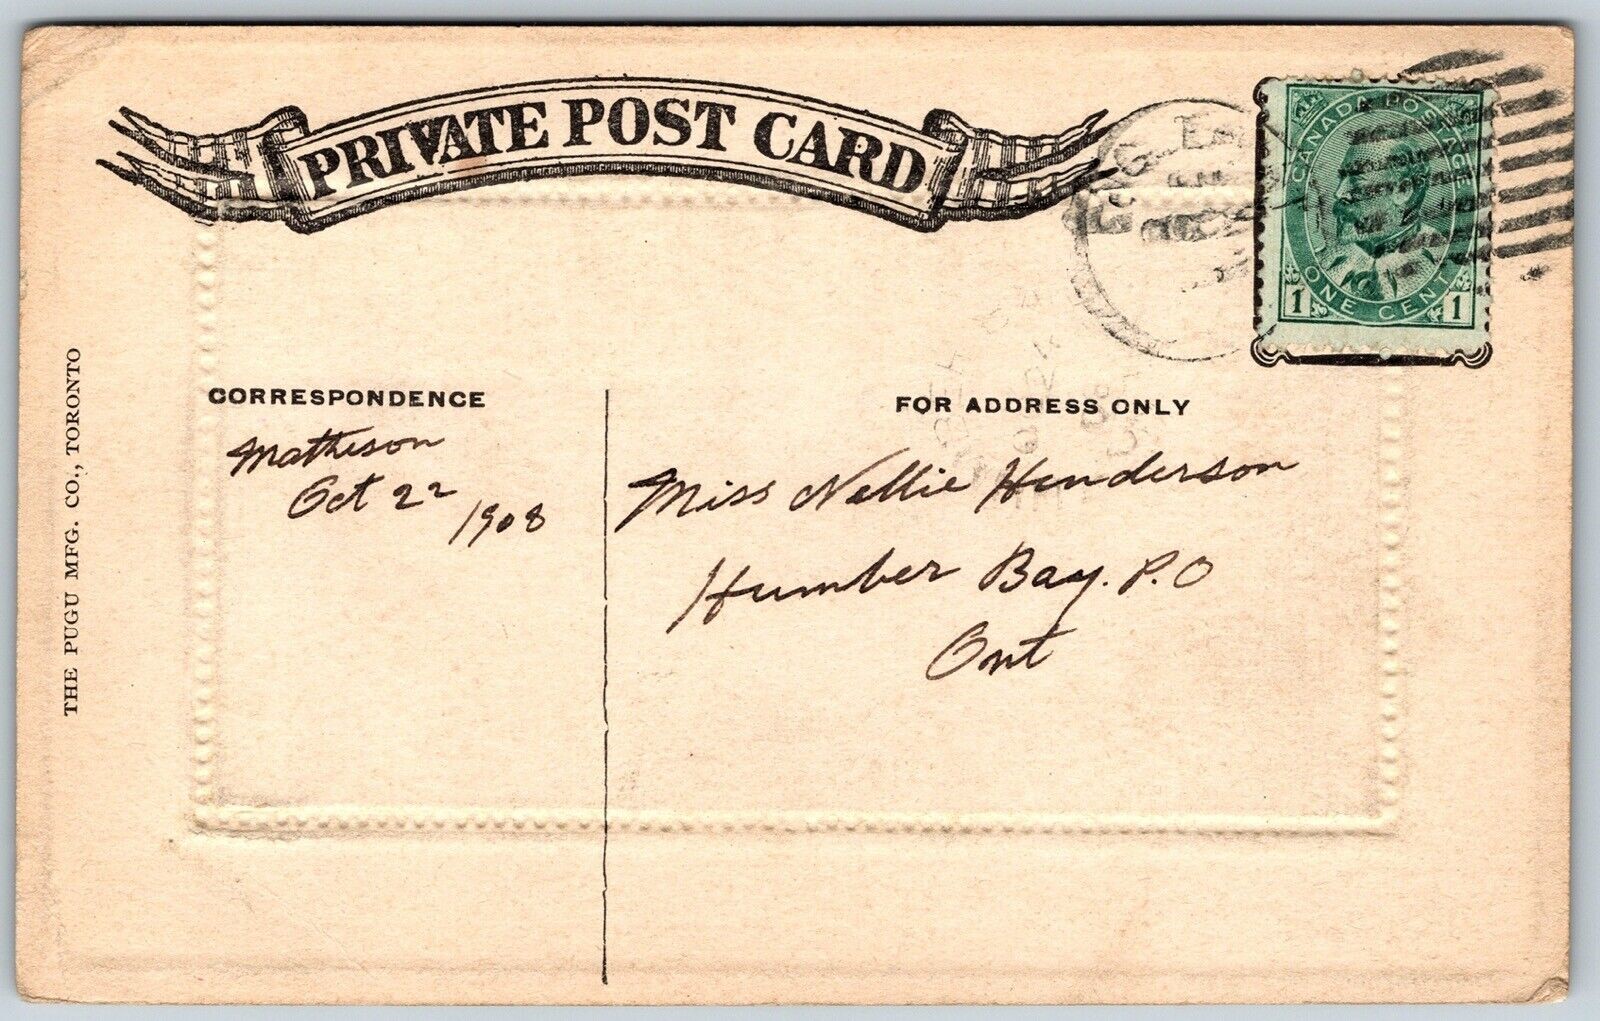 PRIVATE POST CARD
CANADA POSTAGE
ONE CENT
1 1
CORRESPONDENCE
Matheson
Oct 22
1908
FOR ADDRESS ONLY
Miss Nellie Henderson
Humber Bay. P.O
Ont
THE PUGU MFG. CO., TORONTO